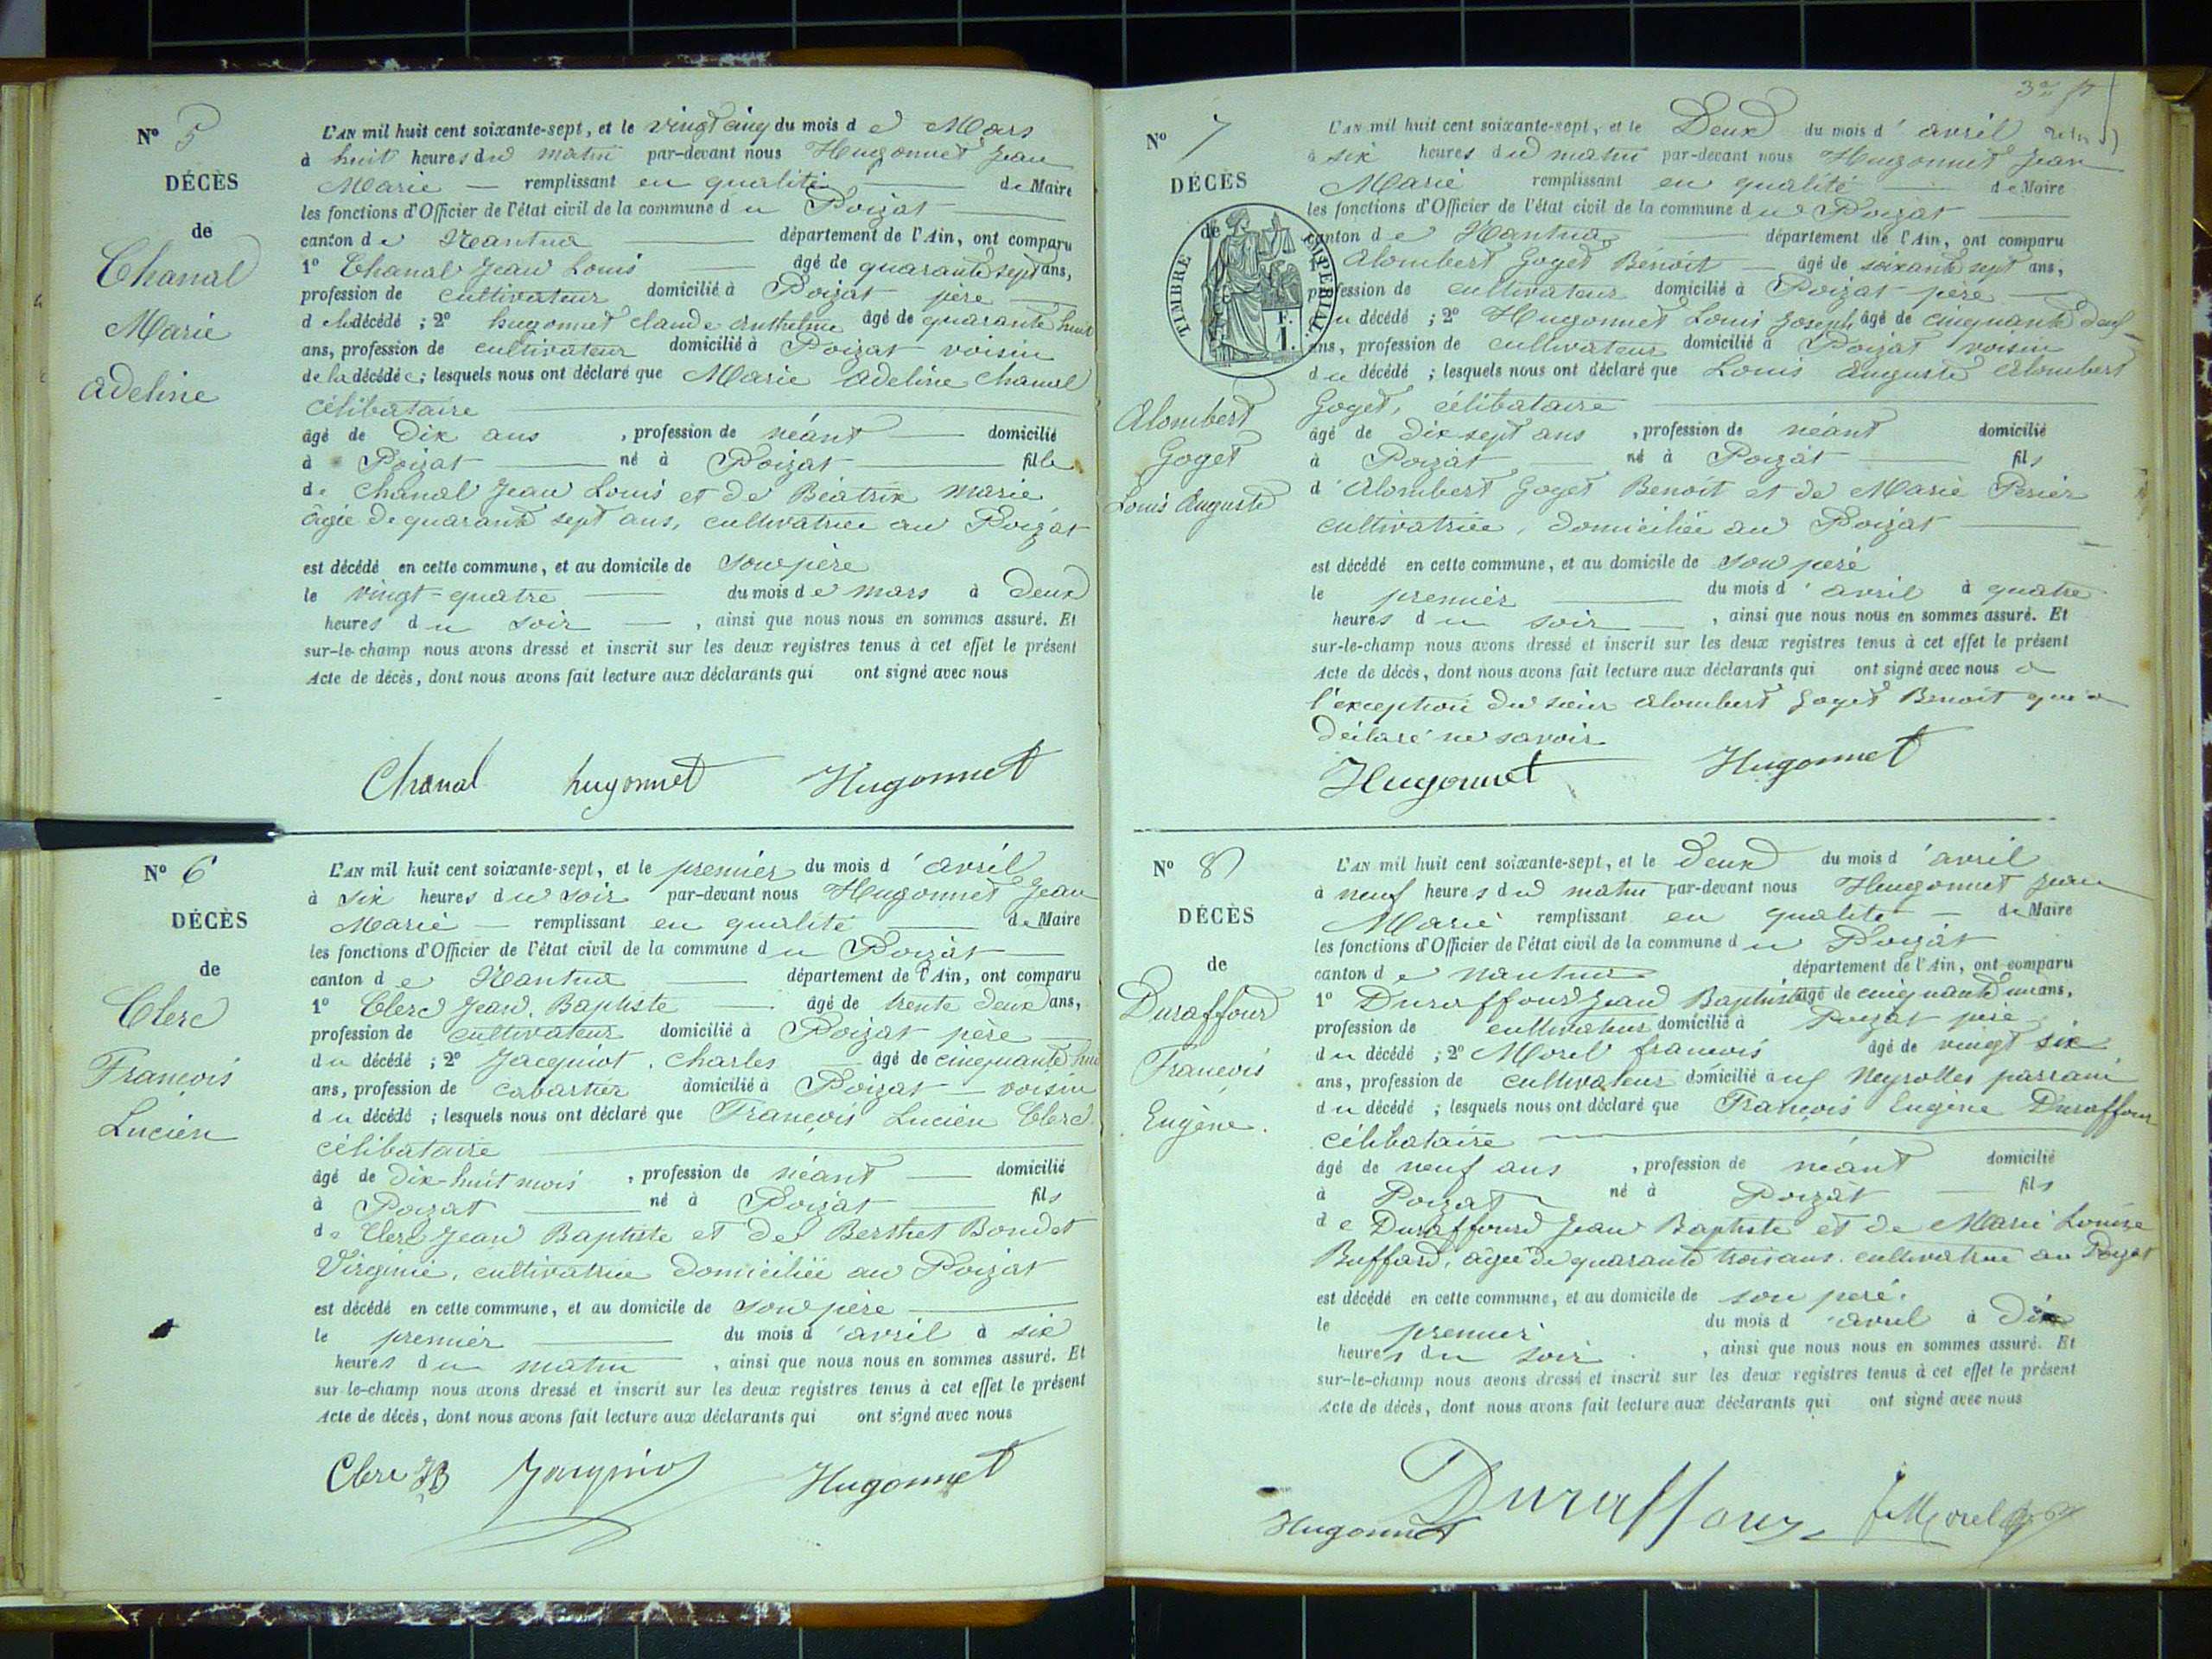 N° 5
DÉCÈS
de
Chanal
Marie
Adeline
L'AN mil huit cent soixante-sept, et le vingt cinq du mois de Mars
à huit heures du matin par-devant nous Hugonnet Jean
Marie — remplissant en qualité — de Maire
les fonctions d'Officier de l'état civil de la commune du Poizat —
canton de Nantua — département de l'Ain, ont comparu
1° Chanal Jean Louis — âgé de quarante sept ans,
profession de cultivateur domicilié à Poizat père —
de la décédé ; 2° hugonnet claude anthelme âgé de quarante huit
ans, profession de cultivateur domicilié à Poizat voisin
de la décédée ; lesquels nous ont déclaré que Marie Adeline Chanal
célibataire —
âgé de Dix ans , profession de néant — domicilié
à Poizat — né à Poizat — fille
de Chanal Jean Louis et de Béatrix Marie
âgée de quarante sept ans, cultivatrice au Poizat
est décédé en cette commune, et au domicile de son père
le vingt-quatre — du mois de mars à Deux
heures du soir — , ainsi que nous nous en sommes assuré. Et
sur-le-champ nous avons dressé et inscrit sur les deux registres tenus à cet effet le présent
Acte de décès, dont nous avons fait lecture aux déclarants qui ont signé avec nous
Chanal hugonnet Hugonnet
N° 6
DÉCÈS
de
Clerc
François
Lucien
L'AN mil huit cent soixante-sept, et le premier du mois d'avril
à six heures du soir par-devant nous Hugonnet Jean
Marie — remplissant en qualité — de Maire
les fonctions d'Officier de l'état civil de la commune du Poizat —
canton de Nantua — département de l'Ain, ont comparu
1° Clerc Jean Baptiste — âgé de trente deux ans,
profession de cultivateur domicilié à Poizat père —
du décédé ; 2° Jacquiot Charles âgé de cinquante huit
ans, profession de cabartier domicilié à Poizat — voisin
du décédé ; lesquels nous ont déclaré que François Lucien Clerc
célibataire —
âgé de Dix-huit mois , profession de néant — domicilié
à Poizat — né à Poizat — fils
de Clerc Jean Baptiste et de Berthet Bondet
Virginie, cultivatrice domiciliée au Poizat
est décédé en cette commune, et au domicile de son père —
le premier — du mois d'avril à six
heures du matin , ainsi que nous nous en sommes assuré. Et
sur-le-champ nous avons dressé et inscrit sur les deux registres tenus à cet effet le présent
Acte de décès, dont nous avons fait lecture aux déclarants qui ont signé avec nous
Clerc JB Jacquiot Hugonnet
N° 7
DÉCÈS
de
TIMBRE IMPÉRIAL
1 F.
Alombert
Goget
Louis Auguste
L'AN mil huit cent soixante-sept, et le Deux du mois d'avril
à six heures du matin par-devant nous Hugonnet Jean
Marie remplissant en qualité — de Maire
les fonctions d'Officier de l'état civil de la commune du Poizat —
canton de Nantua — département de l'Ain, ont comparu
1° Alombert Goget Benoit — âgé de soixante sept ans,
profession de cultivateur domicilié à Poizat père —
du décédé ; 2° Hugonnet Louis Joseph âgé de cinquante deux
ans, profession de cultivateur domicilié à Poizat voisin
du décédé ; lesquels nous ont déclaré que Louis Auguste Alombert
Goget, célibataire —
âgé de Dix sept ans , profession de néant domicilié
à Poizat — né à Poizat — fils
d'Alombert Goget Benoit et de Marie Perier
cultivatrice, domiciliée au Poizat —
est décédé en cette commune, et au domicile de son père
le premier — du mois d'avril à quatre
heures du soir — , ainsi que nous nous en sommes assuré. Et
sur-le-champ nous avons dressé et inscrit sur les deux registres tenus à cet effet le présent
Acte de décès, dont nous avons fait lecture aux déclarants qui ont signé avec nous à
l'exception du sieur Alombert Goget Benoit qui a
déclaré ne savoir
Hugonnet Hugonnet
N° 8
DÉCÈS
de
Duraffourd
François
Eugène.
L'AN mil huit cent soixante-sept, et le Deux du mois d'avril
à neuf heures du matin par-devant nous Hugonnet Jean
Marie remplissant en qualité — de Maire
les fonctions d'Officier de l'état civil de la commune du Poizat
canton de nantua département de l'Ain, ont comparu
1° Duraffourd Jean Baptiste âgé de cinquante un ans,
profession de cultivateur domicilié à Poizat père
du décédé ; 2° Morel francois âgé de vingt six
ans, profession de cultivateur domicilié aux Neyrolles parrain
du décédé ; lesquels nous ont déclaré que François Eugène Duraffour
célibataire —
âgé de neuf ans , profession de néant domicilié
à Poizat né à Poizat — fils
de Duraffourd Jean Baptiste et de Marie Louise
Buffard, âgée de quarante trois ans. cultivatrice au Poizat
est décédé en cette commune, et au domicile de son père.
le premier du mois d'avril à Dix
heures du soir , ainsi que nous nous en sommes assuré. Et
sur-le-champ nous avons dressé et inscrit sur les deux registres tenus à cet effet le présent
Acte de décès, dont nous avons fait lecture aux déclarants qui ont signé avec nous
Hugonnet Duraffour f Morel